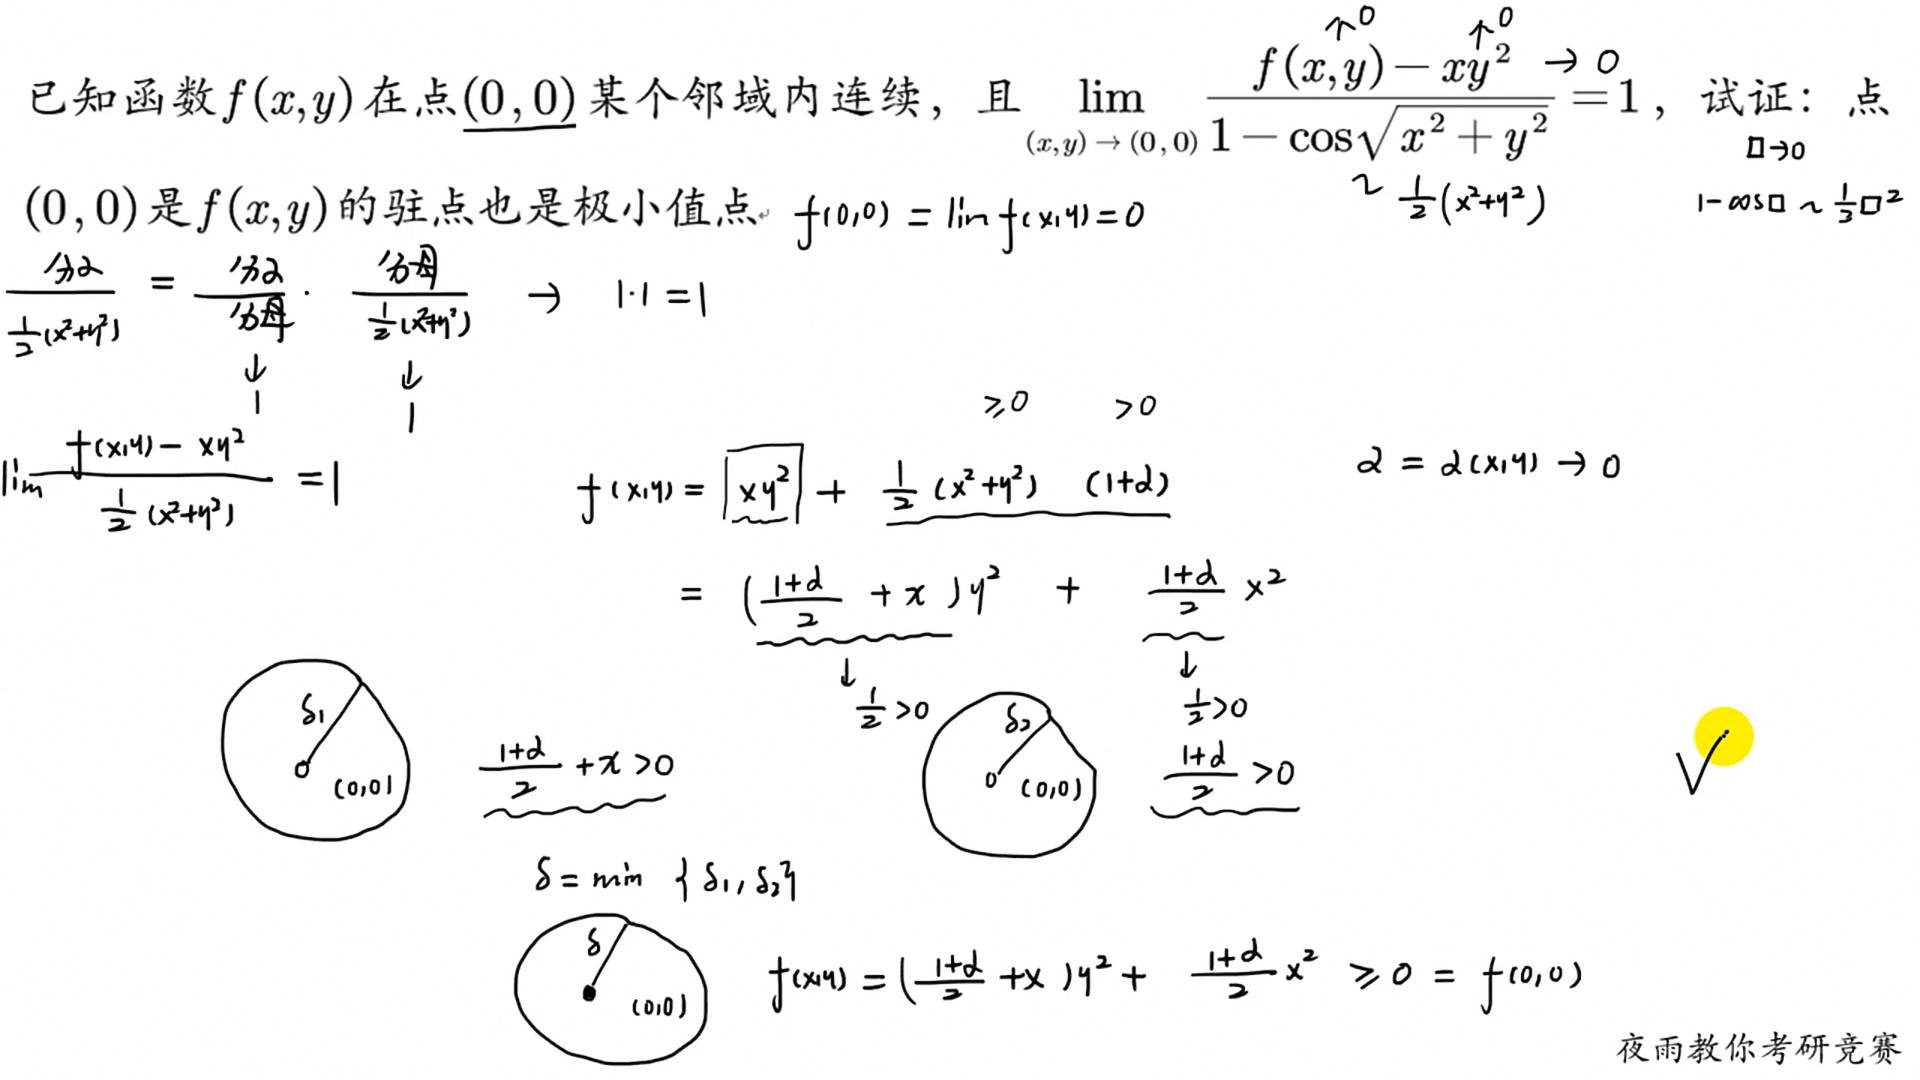 ↑0 ↑0
已知函数f(x,y)在点(0,0)某个邻域内连续，且 lim_{(x,y)→(0,0)} \frac{f(x,y)-xy^2}{1-cos\sqrt{x^2+y^2}} =1，试证：点
→0
□→0
(0,0)是f(x,y)的驻点也是极小值点 f(0,0) = lim f(x,y)=0
~ \frac{1}{2}(x²+y²)
1-cos□ ~ \frac{1}{2}□²
\frac{分子}{\frac{1}{2}(x²+y²)} = \frac{分子}{分母} · \frac{分母}{\frac{1}{2}(x²+y²)} → 1·1=1
↓ ↓
1 1
≥0 >0
lim \frac{f(x,y)-xy²}{\frac{1}{2}(x²+y²)} =1
f(x,y) = xy² + \frac{1}{2}(x²+y²) (1+α)
α = α(x,y) → 0
= (\frac{1+α}{2} + x)y² + \frac{1+α}{2} x²
↓ ↓
\frac{1}{2}>0 \frac{1}{2}>0
δ₁ (0,0) \frac{1+α}{2} +x>0
δ₂ 0 (0,0) \frac{1+α}{2} >0
√
δ = min {δ₁, δ₂}
δ (0,0)
f(x,y) = (\frac{1+α}{2} +x)y² + \frac{1+α}{2} x² ≥ 0 = f(0,0)
夜雨教你考研竞赛